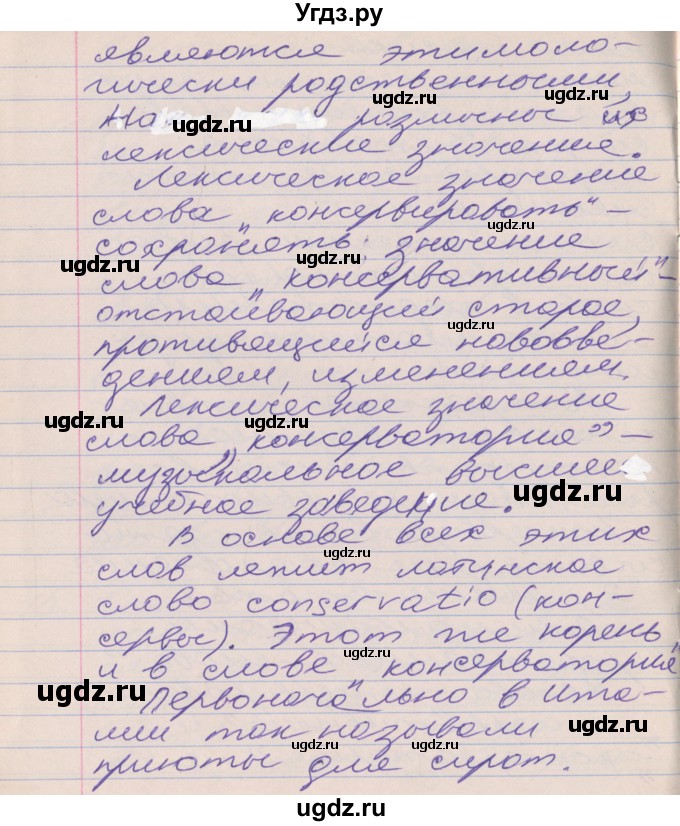 Угдз.ру
являются этимоло-
гически родственными,
На различные их
лексические значение.
Лексическое значение
слова „консервировать" -
сохранять; значение
слова „консервативный" -
отстаивающий старое,
противящийся нововве-
дениям, изменениям.
Лексическое значение
слова „консерватория" -
музыкальное высшее
учебное заведение.
В основе всех этих
слов лежит латинское
слово conservatio (кон-
сервы). Этот же корень
и в слове „консерватория"
Первоначально в Ита-
лии так называли
приюты для сирот.
ugdz.ru